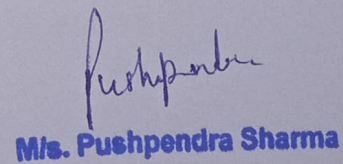 Pushpendra
M/s. Pushpendra Sharma